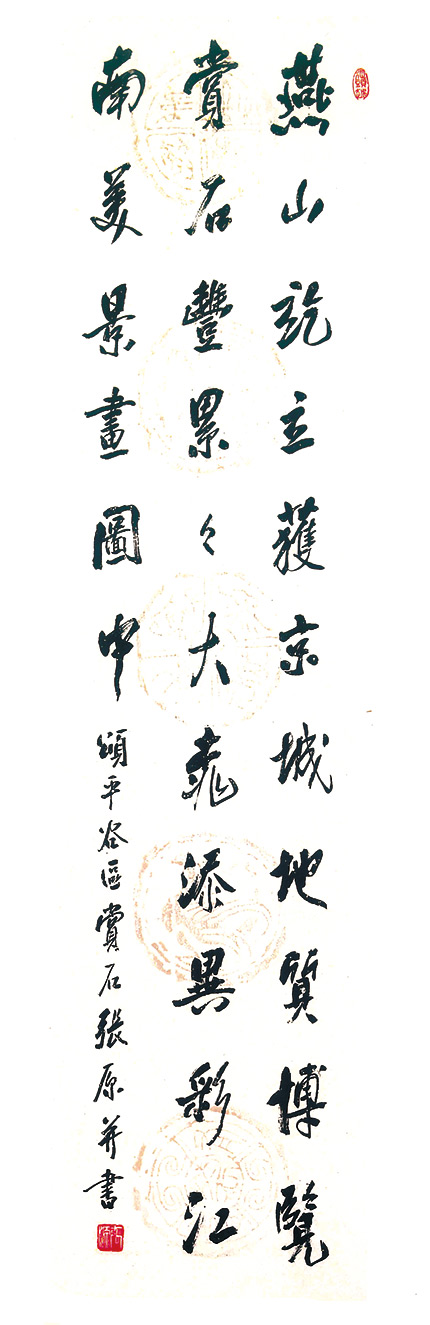 燕山訖立獲京城地質博覽
賞石豐累々大桃添異彩江
南美景畫圖中頌平谷區賞石張原并書